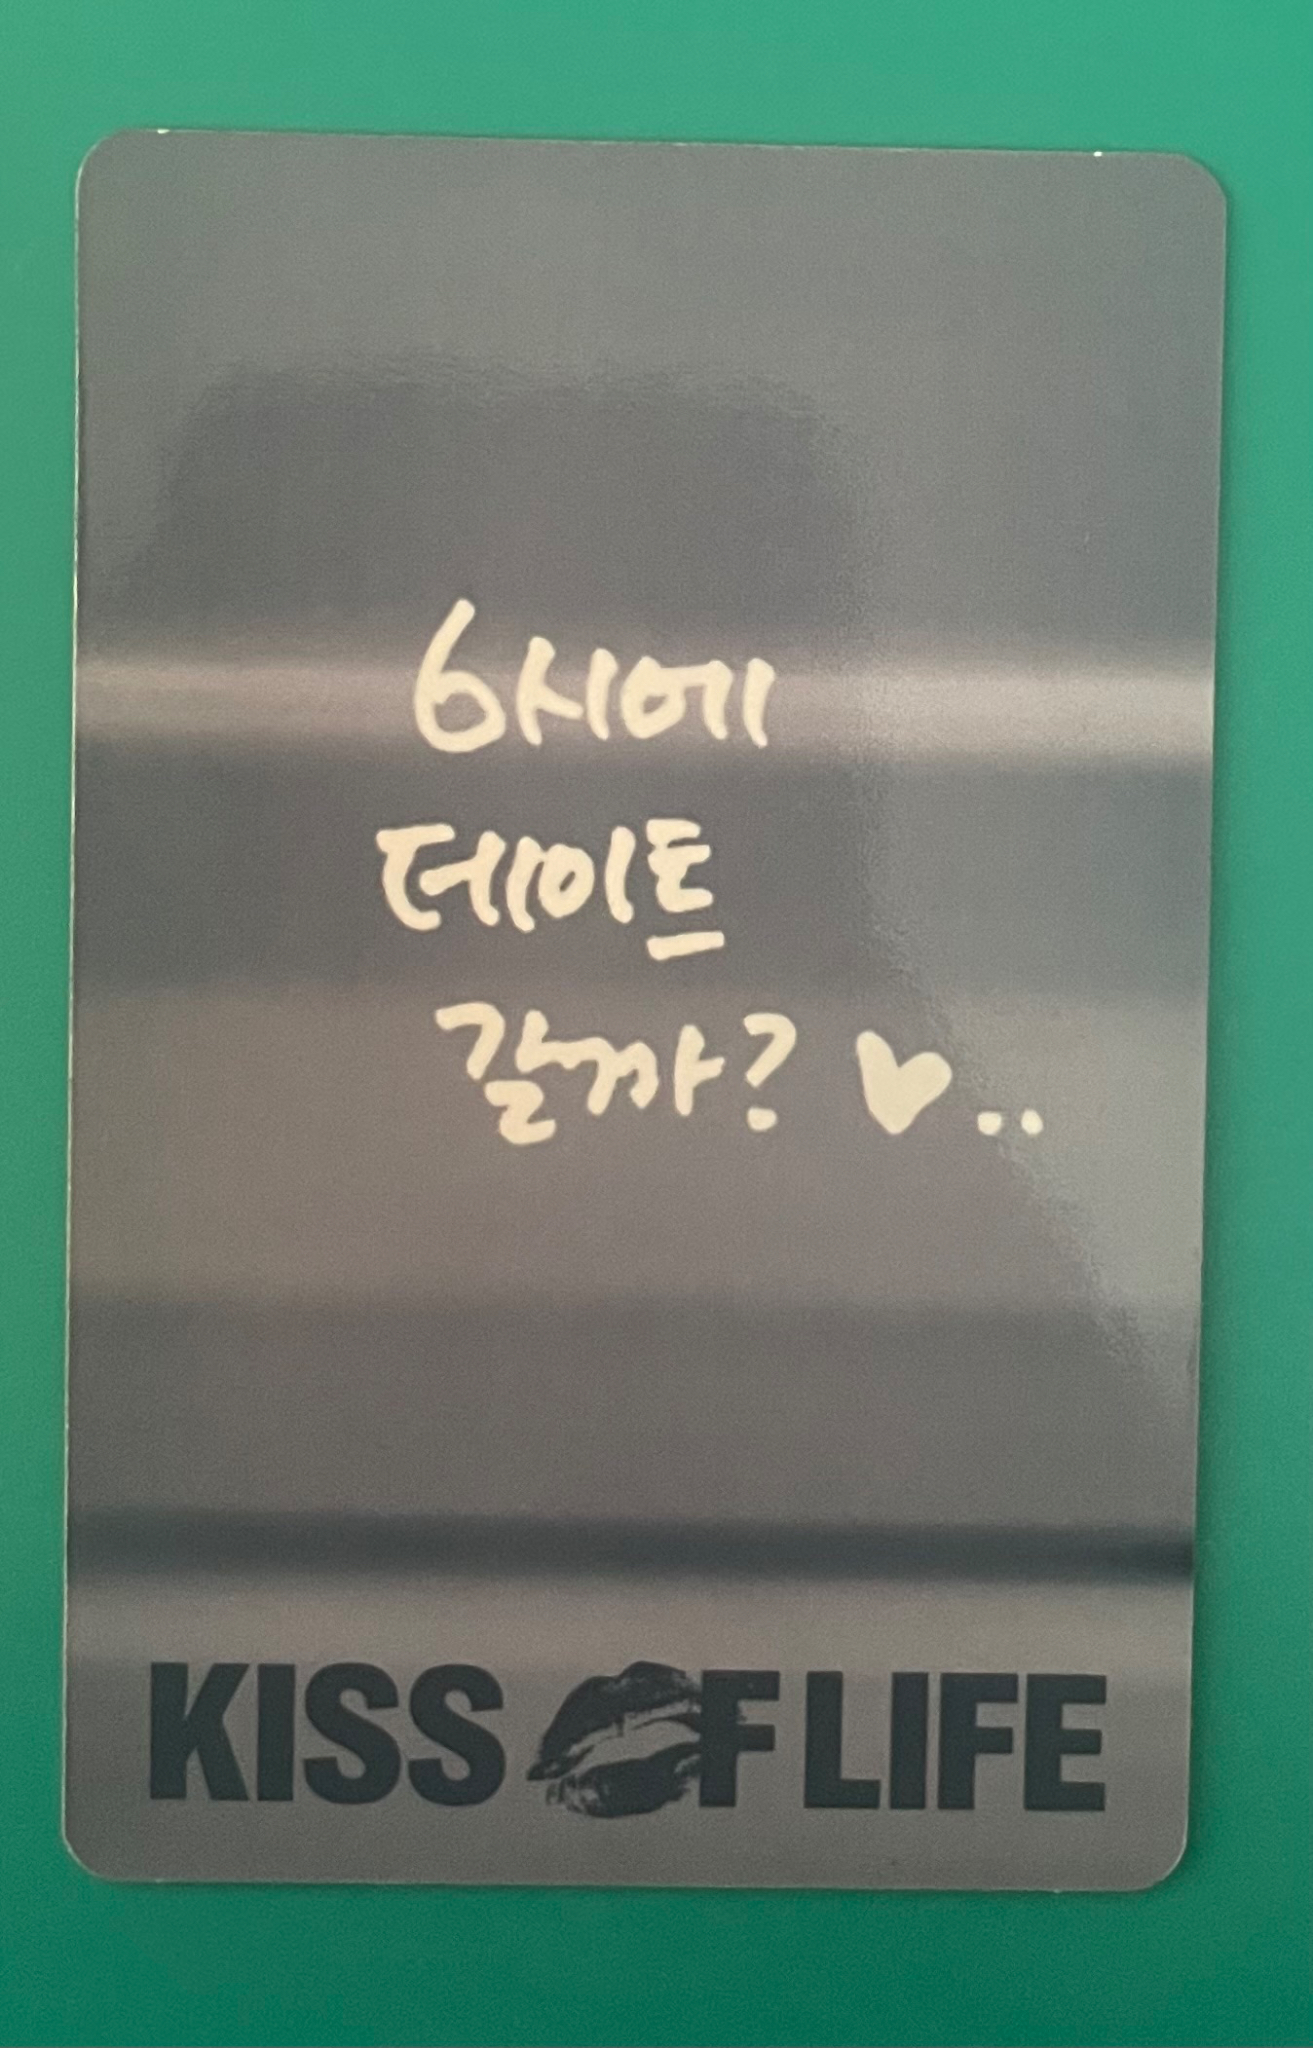 6시에
데이트
갈까? ♥..
KISS OF LIFE